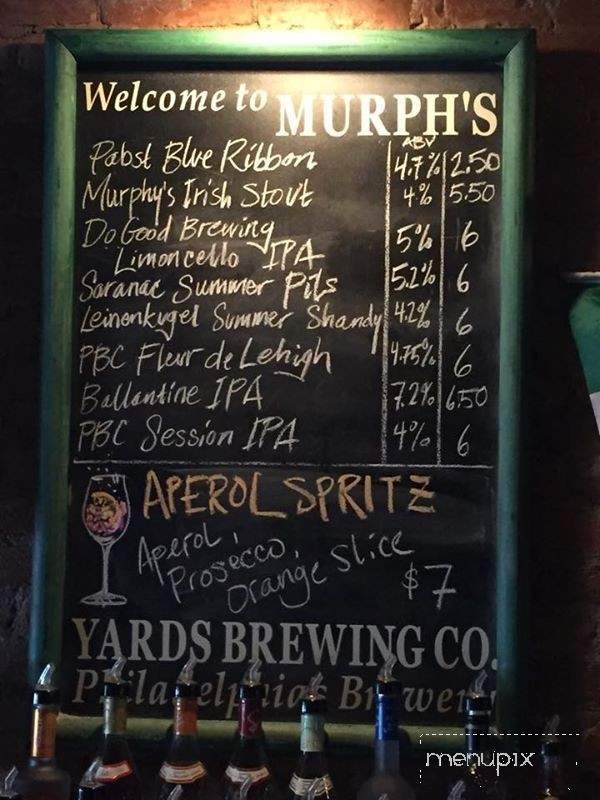 Welcome to MURPH'S
ABV
Pabst Blue Ribbon 4.7% 2.50
Murphy's Irish Stout 4% 5.50
Do Good Brewing
Limoncello IPA 5% 6
Saranac Summer Pils 5.2% 6
Leinenkugel Summer Shandy 4.2% 6
PBC Fleur de Lehigh 4.75% 6
Ballantine IPA 7.2% 6.50
PBC Session IPA 4% 6
APEROL SPRITZ
Aperol,
Prosecco,
Orange Slice
$7
YARDS BREWING CO.
Philadelphia's Brewery
menupix